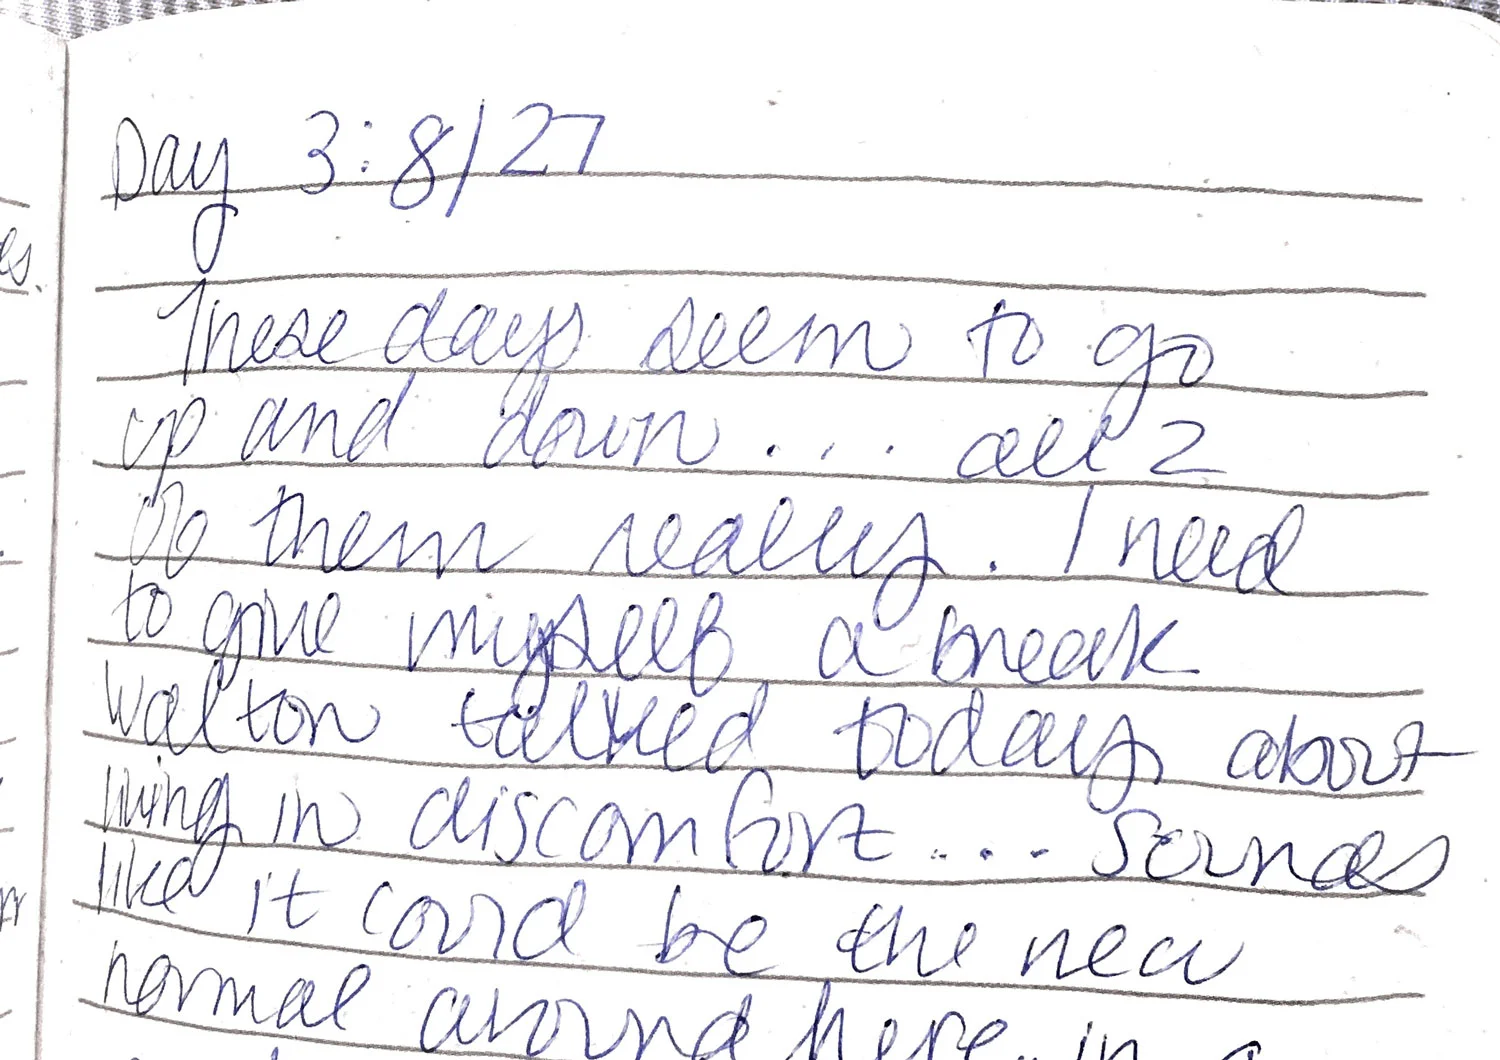 Day 3: 8/27
These days seem to go
up and down... all 2
of them really. I need
to give myself a break
Walton talked today about
living in discomfort... Sounds
like it could be the new
normal around here, in a
es.